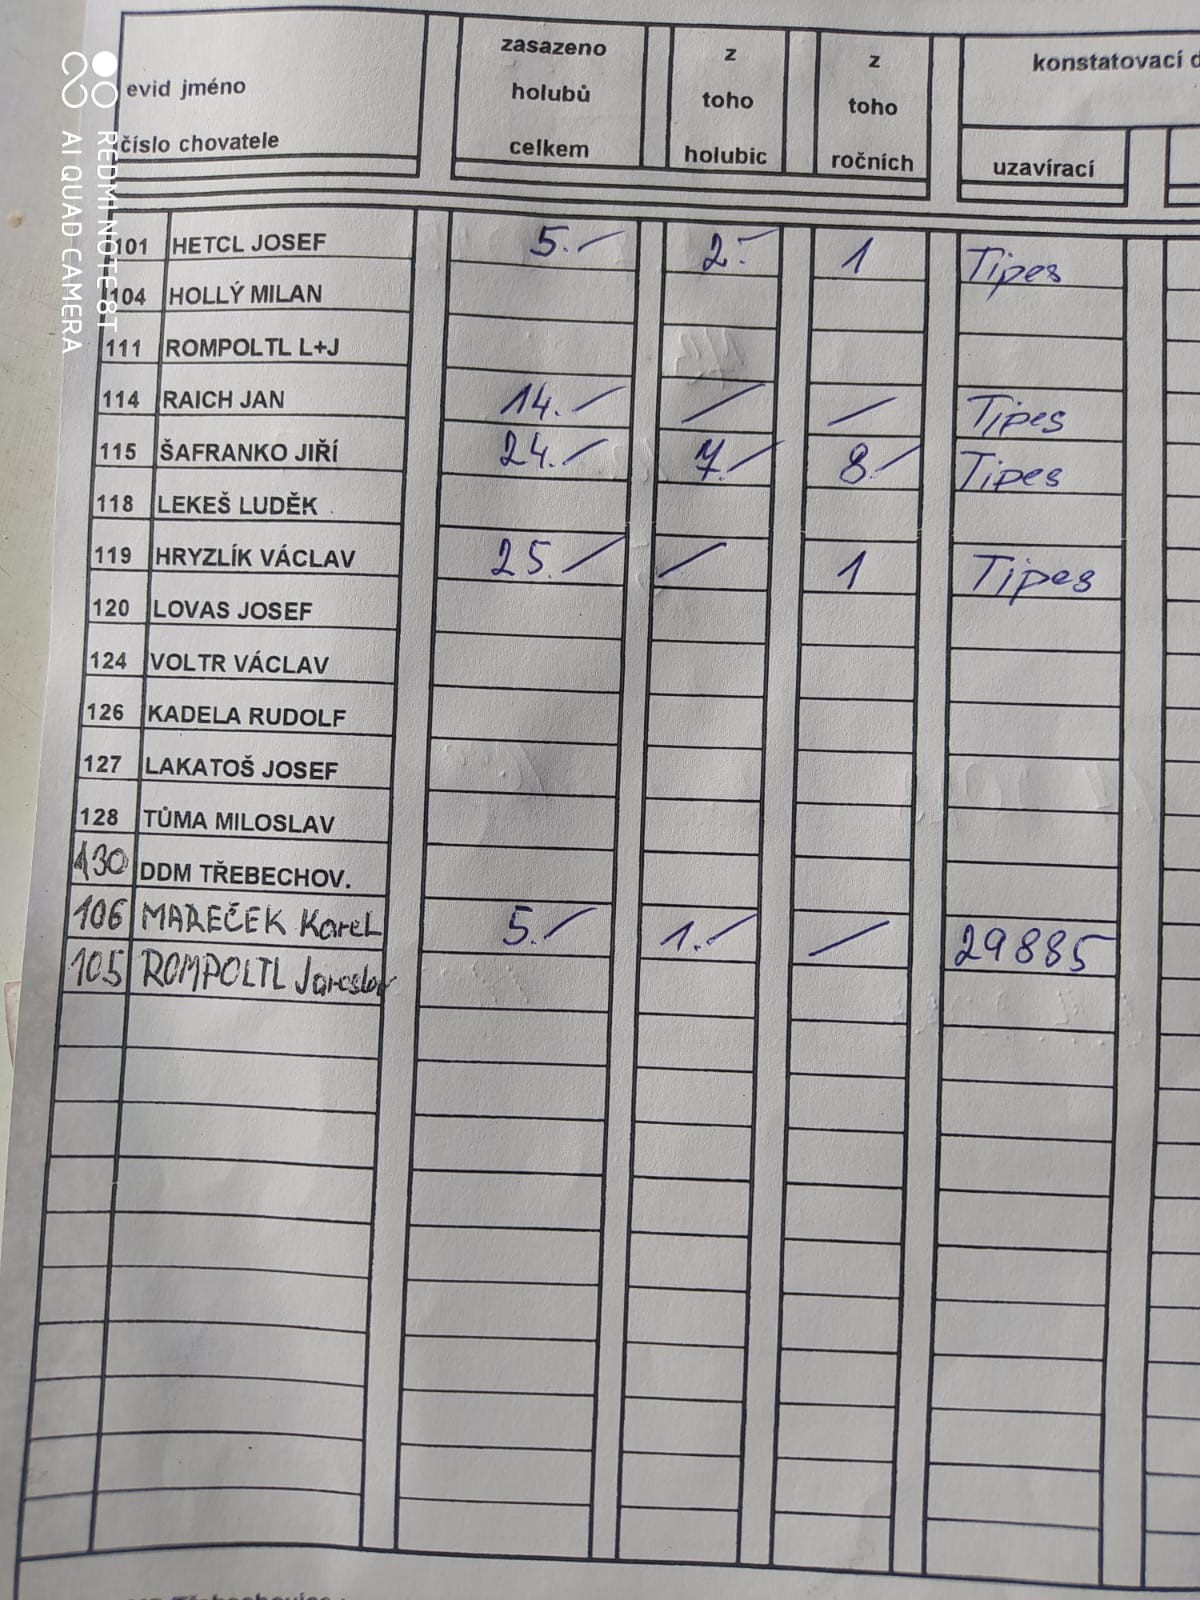 zasazeno z z konstatovací d
evid jméno holubů toho toho
číslo chovatele celkem holubic ročních uzavírací
101 HETCL JOSEF 5.– 2.– 1 Tipes
104 HOLLÝ MILAN
111 ROMPOLTL L+J
114 RAICH JAN 14.– – – Tipes
115 ŠAFRANKO JIŘÍ 24.– 7.– 8.– Tipes
118 LEKEŠ LUDĚK
119 HRYZLÍK VÁCLAV 25.– – 1 Tipes
120 LOVAS JOSEF
124 VOLTR VÁCLAV
126 KADELA RUDOLF
127 LAKATOŠ JOSEF
128 TŮMA MILOSLAV
130 DDM TŘEBECHOV.
106 MAREČEK Karel 5.– 1.– – 29885
105 ROMPOLTL Jaroslav
REDMI NOTE 8T
AI QUAD CAMERA